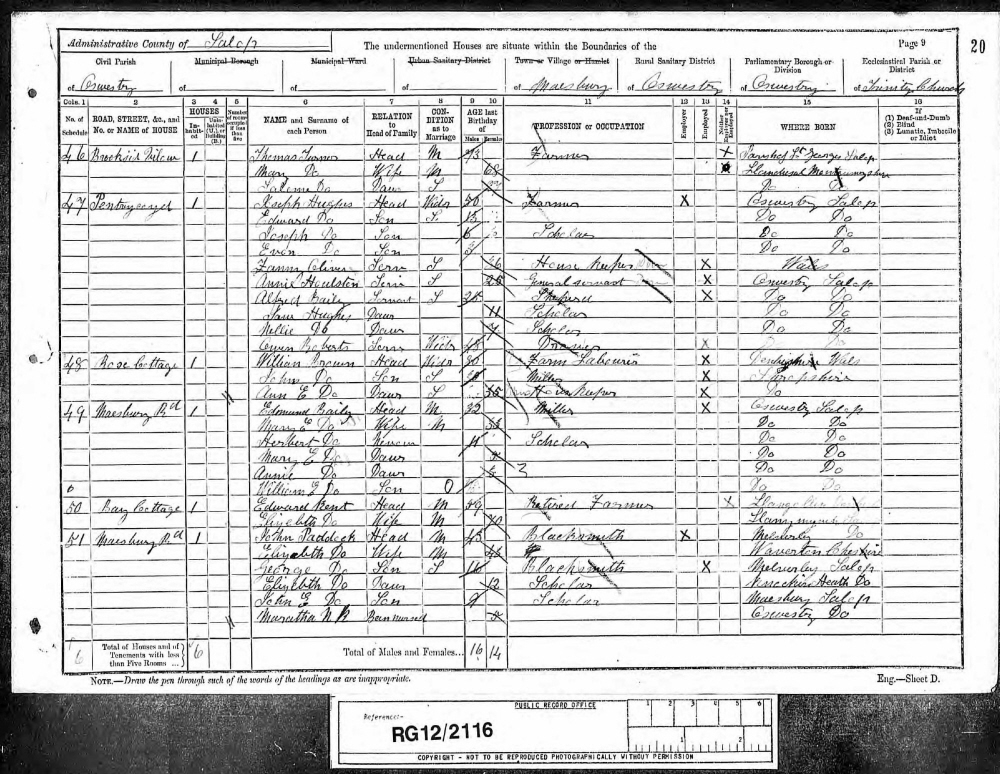 Administrative County of Salop
The undermentioned Houses are situate within the Boundaries of the
Page 9
20
Civil Parish
Municipal Borough
Municipal Ward
Urban Sanitary District
Town or Village or Hamlet
Rural Sanitary District
Parliamentary Borough or Division
Ecclesiastical Parish or District
of Oswestry
of
of
of
of Maesbury
of Oswestry
of Oswestry
of Trinity Church
Cols. 1 2 3 4 5 6 7 8 9 10 11 12 13 14 15 16
No. of Schedule
ROAD, STREET, &c., and No. or NAME of HOUSE
HOUSES
In-habited
Uninhabited (U.), or Building (B.)
Number of rooms occupied if less than five
NAME and Surname of each Person
RELATION to Head of Family
CONDITION as to Marriage
AGE last Birthday of
Males
Females
PROFESSION or OCCUPATION
Employer
Employed
Neither Employer nor Employed
WHERE BORN
If
(1) Deaf-and-Dumb
(2) Blind
(3) Lunatic, Imbecile or Idiot
46 1 Thomas Turner Head M 73 Farmer X Parish of St Georges Salop
Mary Do Wife M 68
Do Daur S Do Do
47 1 Joseph Hughes Head Widr 50 Farmer X Oswestry Salop
Edward Do Son S 13 Do Do
Joseph Do Son 6 Scholar Do Do
Evan Do Son 3 Do Do
Fanny Oliver Serv S 26 House keeper X Wales
Annie Houlston Serv S General servant X Oswestry Salop
Alfred Baily Servant S Sheperd X Do Do
Jane Hughes Daur 11 Scholar Do Do
Nellie Do Daur 7 Scholar Do Do
Owen Roberts Serv Widr 48 X Do Do
48 Rose Cottage 1 William Brown Head Widr 80 Farm Labourer X Wales
John Do Son S Miller X Shropshire
Ann E Do Daur S 35 Housekeeper X Do
49 Maesbury Rd 1 Edmund Baily Head M 32 Miller X Oswestry Salop
Mary E Do Wife M 33 Do Do
Herbert Do 11 Scholar Do Do
Mary E Do Daur Do Do
Annie Do Daur 3 Do Do
William E Do Son Do Do
50 Bay Cottage 1 Edward Kent Head M 59 Retired Farmer X
Elizabth Do Wife M 70
51 Maesbury Rd 1 John Paddock Head M 45 Blacksmith X Melverley Do
Elizabth Do Wife M 46 Waverton Cheshire
George Do Son S 16 Blacksmith X Melverley Salop
Elizbth Do Daur 12 Scholar Heath Do
John E Do Son 9 Scholar Maesbury Salop
Oswestry Do
6
Total of Houses and of Tenements with less than Five Rooms ...
6
Total of Males and Females... 16 14
NOTE.—Draw the pen through such of the words of the headings as are inappropriate.
Eng.—Sheet D.
PUBLIC RECORD OFFICE
Reference:-
RG12/2116
1 2 3 4 5 6
COPYRIGHT - NOT TO BE REPRODUCED PHOTOGRAPHICALLY WITHOUT PERMISSION